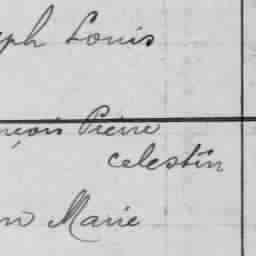 eph Louis
nçois Pierre
celestin
on Marie